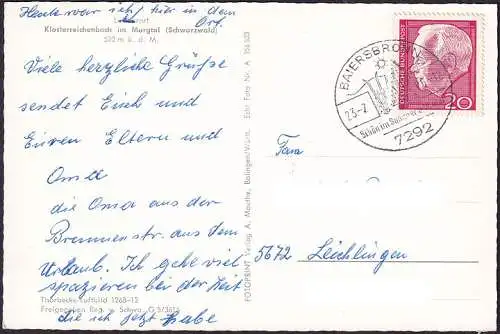 Heute war ich hier in dem
Ort.
Klosterreichenbach im Murgtal (Schwarzwald)
522 m ü. d. M.
Viele herzliche Grüße
sendet Euch und
Euren Eltern und
Oma
die Oma aus der
Brunnenstr. aus dem
Urlaub. Ich gehe viel
spazieren bei der Zeit
die ich jetzt habe
Thorbecke-Luftbild 1268-12
Freigegeben Reg. v. Schwa.
FOTOPRINT Verlag A. Mauthe, Balingen/Württ. Echt Foto Nr. A
BAIERSBRONN
23.-7.
7292
DEUTSCHE BUNDESPOST
20
Fam
5672 Leichlingen